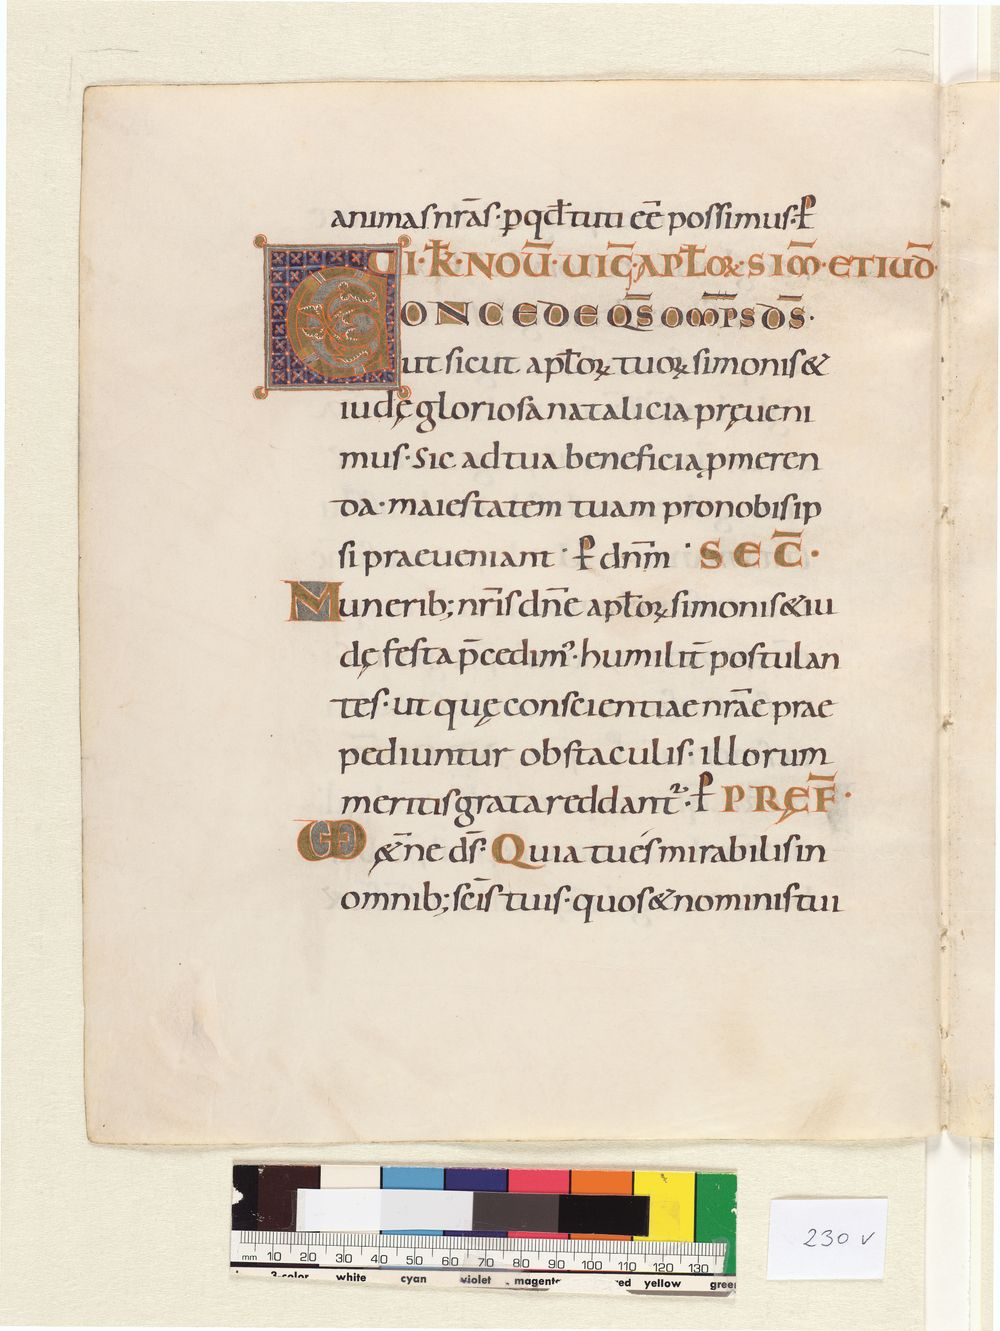 animas nr̄as· ꝑ qđ tuti eē possimus· ꝑ
VI· K̄L· NOV̄· VIC̄· APŁOꝜ· SIM̄· ET IUD̄·
CONCEDE QS̄ OM̄PS DS̄·
ut sicut apłoꝝ tuoꝝ simonis &
iudę gloriosa natalicia pręueni
mus· Sic ad tua beneficia ꝓmeren
da· maiestatem tuam pro nobis ip
si praeueniant· ꝑ dnm̄· SEC̄·
Munerib; nr̄is dn̄e apłoꝝ simonis & iu
dę festa p̄cedim᾿· humilit̄ postulan
tes· ut quę conscientiae nr̄ae prae
pediuntur obstaculis· illorum
meritis grata reddant᾿· ꝑ PRĘF̄·
UD &̄ne ds̄· Quia tu és mirabilis in
omnib; sc̄is tuis· quos & nominis tui
mm 10 20 30 40 50 60 70 80 90 100 110 120 130
3-color white cyan violet magent red yellow green
230 v